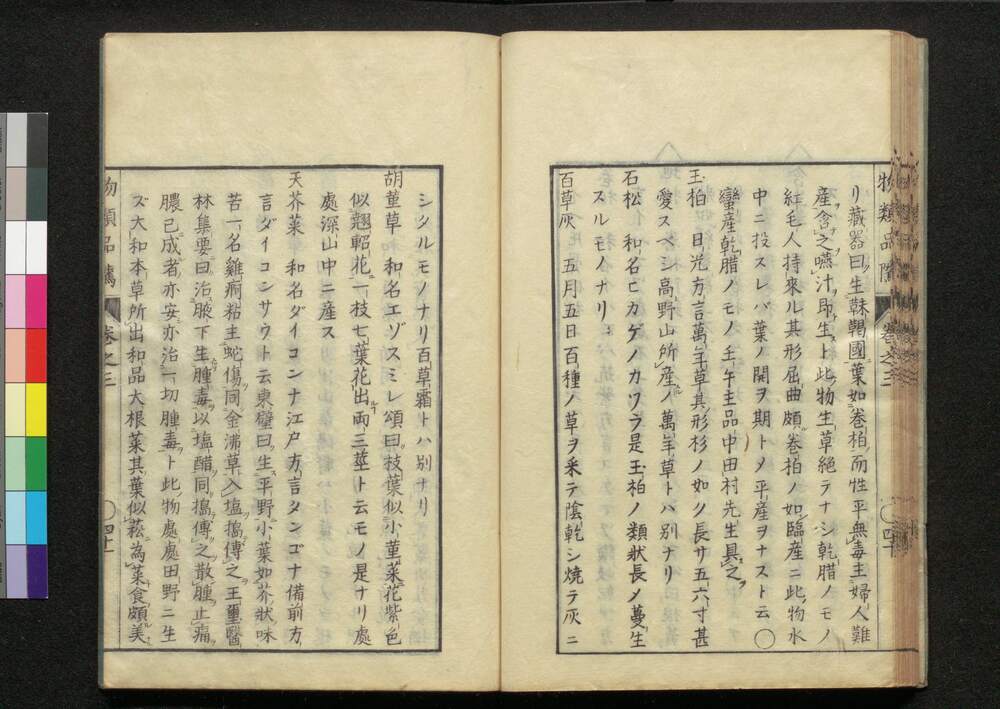 リ藏器曰生靺鞨國葉如卷柏而性平無毒主婦人難
産含之嚥汁即生ト此物生草絶テナシ乾腊ノモノ
紅毛人持來ル其形屈曲頗卷柏ノ如臨産ニ此物水
中ニ投スレバ葉ノ開ヲ期トメ平産ヲナスト云〇
蠻産乾腊ノモノ壬午主品中田村先生具之
玉柏 日光方言萬年草其形杉ノ如ク長サ五六寸甚
愛スベシ高野山所産ノ萬年草トハ別ナリ
石松 和名ヒカゲノカツラ是玉柏ノ類狀長ノ蔓生
スルモノナリ
百草灰 五月五日百種ノ草ヲ采テ陰乾シ燒テ灰ニ
物類品隲 卷之三 〇四十
シタルモノナリ百草霜トハ別ナリ
胡菫草 和名エゾスミレ頌曰枝葉似小菫菜花紫色
似翹軺花一枝七葉花出兩三莖ト云モノ是ナリ處
處深山中ニ産ス
天芥菜 和名ダイコンナ江戸方言タンゴナ備前方
言ダイコンサウト云東璧曰生平野小葉如芥狀味
苦一名雞痾粘主蛇傷同金沸草入塩搗傅之王璽醫
林集要曰治腋下生腫毒以塩醋同搗傅之散腫止痛
膿已成者亦安亦治一切腫毒ト此物處處田野ニ生
ズ大和本草所出和品大根菜其葉似菘為菜食頗美
物類品隲 卷之三 〇四十一